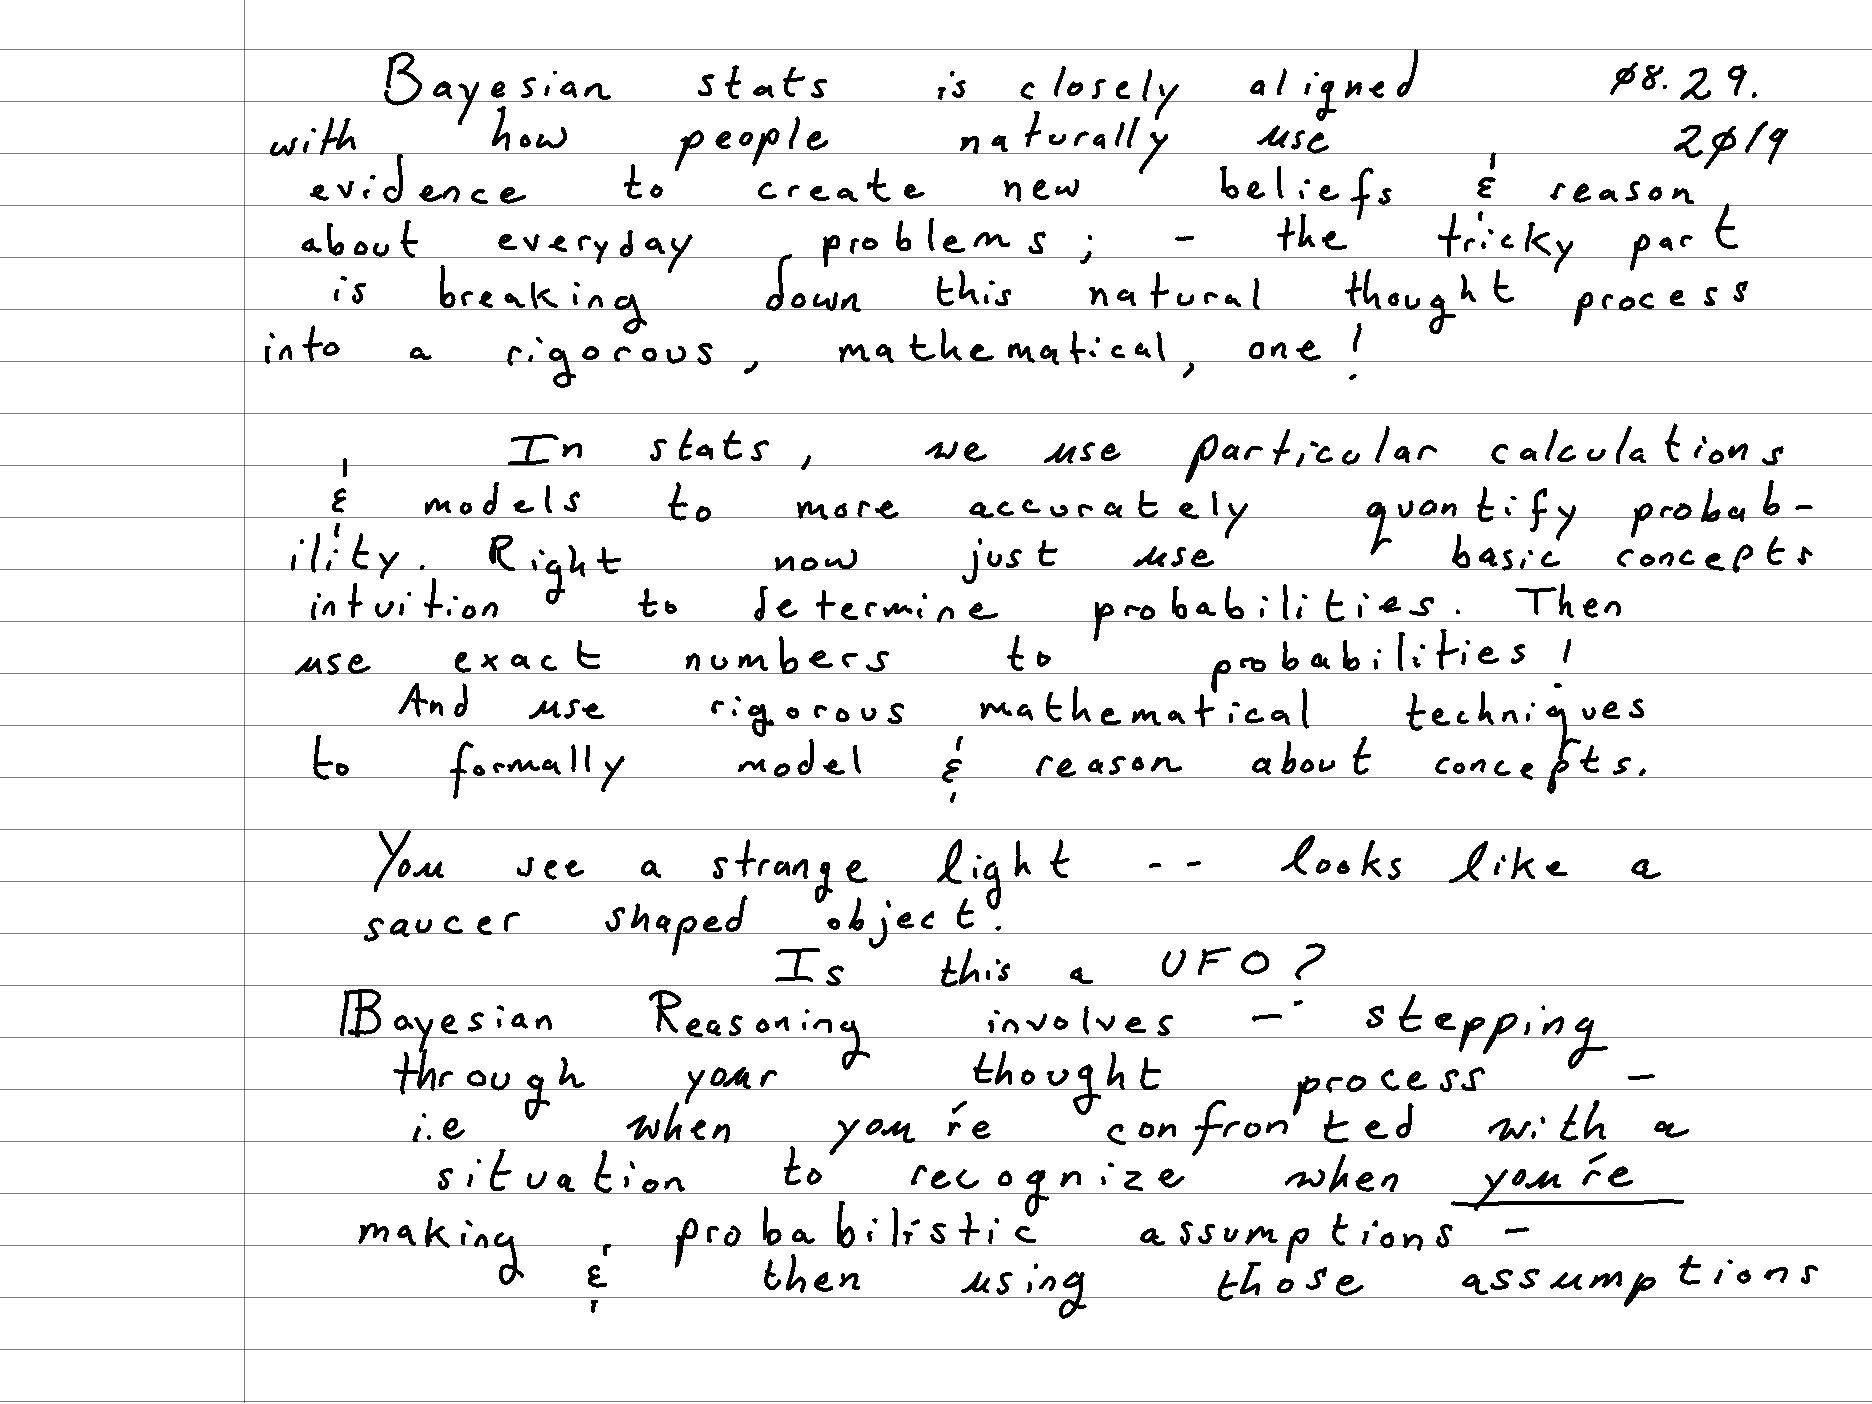 Bayesian stats is closely aligned 08.29.
with how people naturally use 2019
evidence to create new beliefs & reason
about everyday problems; - the tricky part
is breaking down this natural thought process
into a rigorous, mathematical, one!
In stats, we use particular calculations
& models to more accurately quantify probab-
ility. Right now just use basic concepts
intuition to determine probabilities. Then
use exact numbers to probabilities!
And use rigorous mathematical techniques
to formally model & reason about concepts.
You see a strange light -- looks like a
saucer shaped object.
Is this a UFO?
Bayesian Reasoning involves - stepping
through your thought process -
i.e when you're confronted with a
situation to recognize when you're
making probabilistic assumptions -
& then using those assumptions